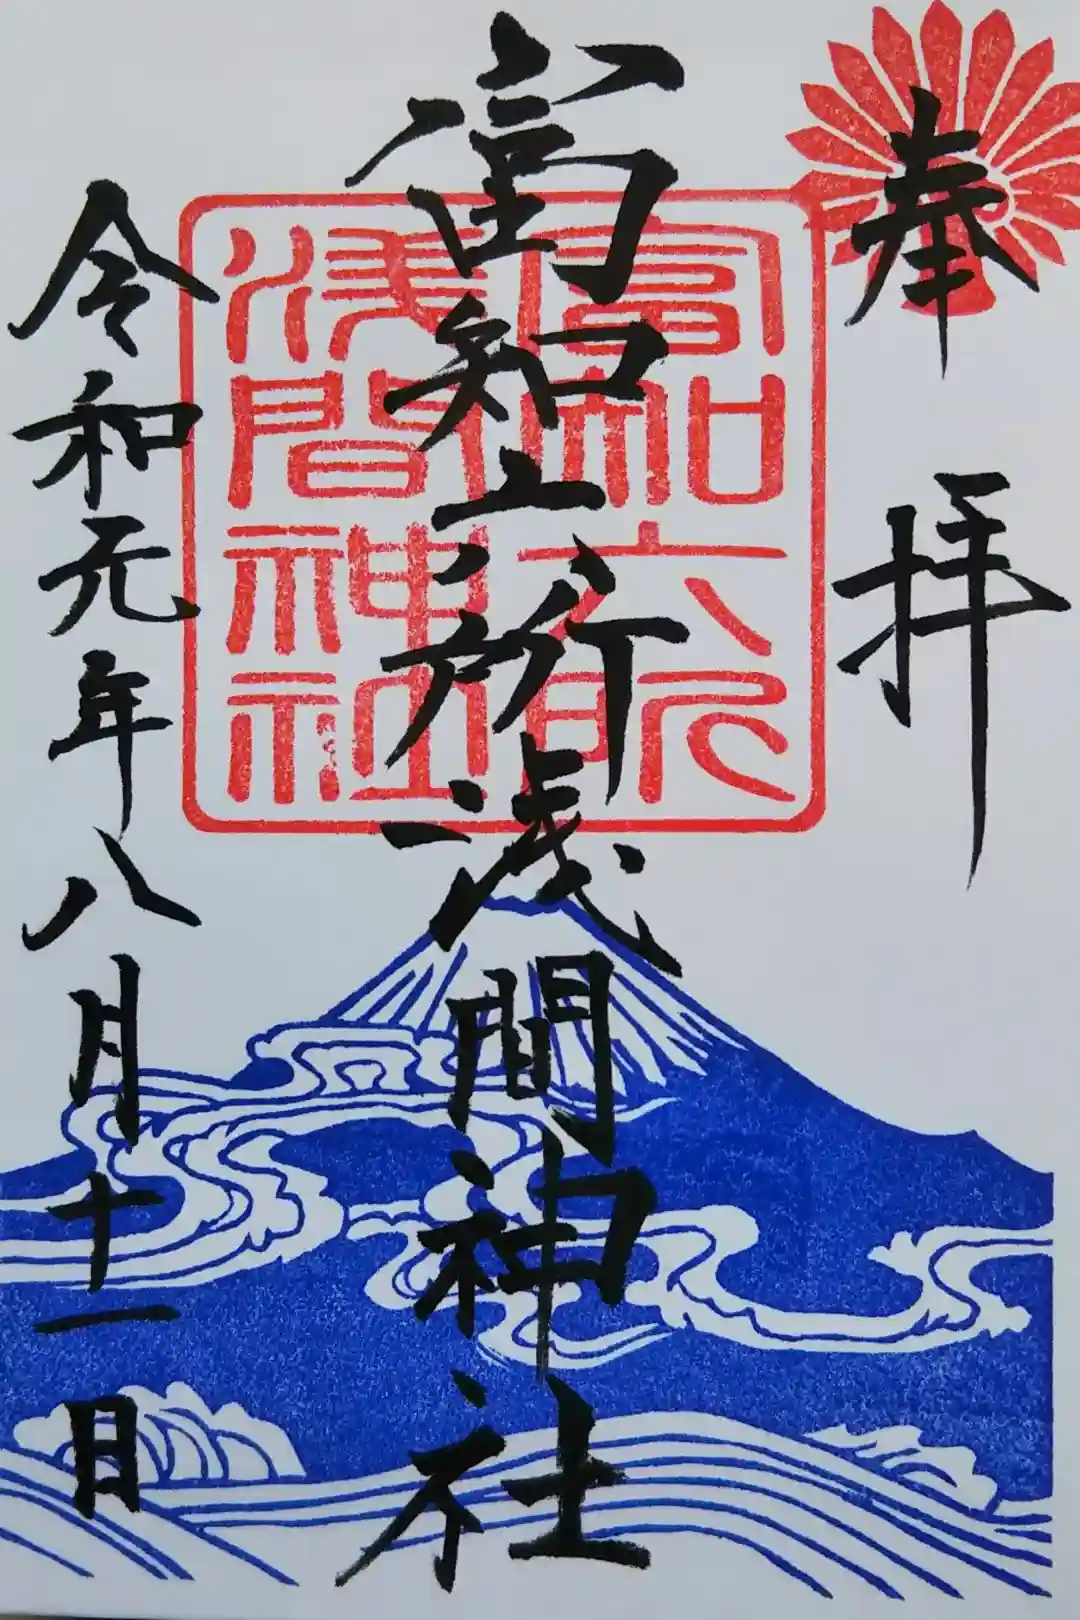 奉拝
富知六所浅間神社
富知六所
浅間神社
令和元年八月十一日